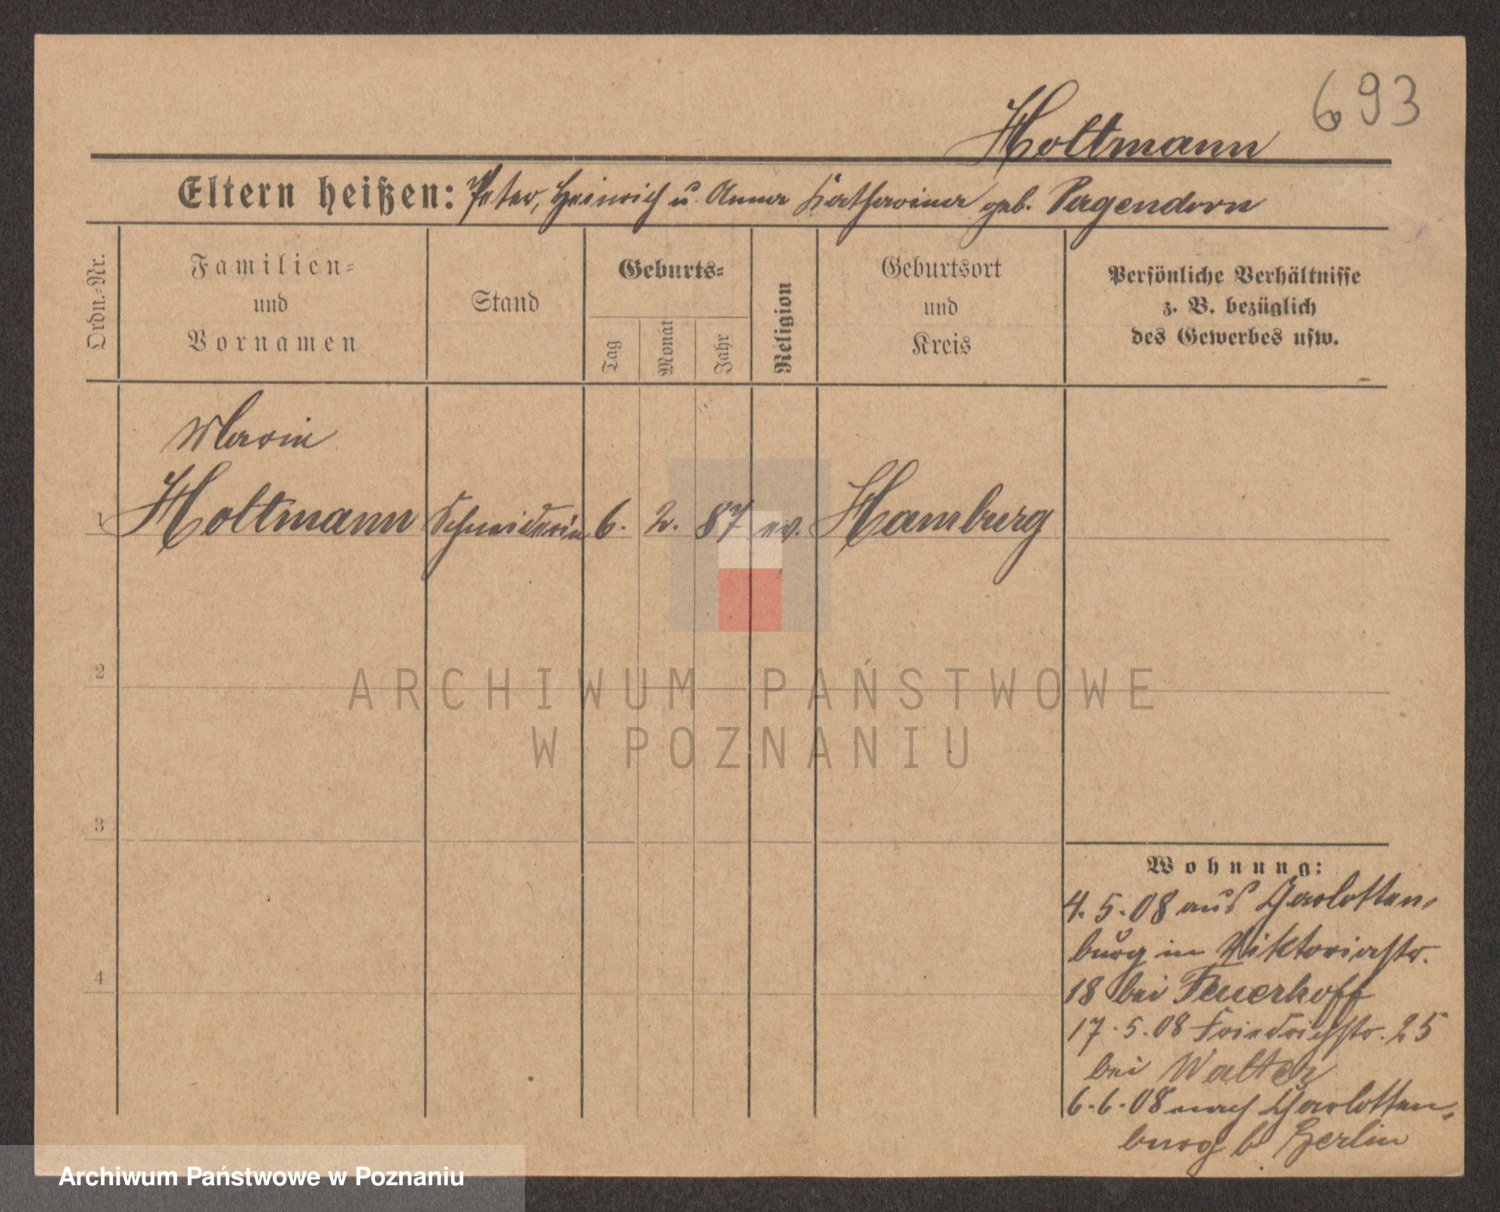 693
Holtmann
Eltern heißen: Peter, Heinrich u. Anna Katharina geb. Pagendorn
Ordn.-Nr.
Familien-
und
Vornamen
Stand
Geburts-
Tag
Monat
Jahr
Religion
Geburtsort
und
Kreis
Persönliche Verhältnisse
z. B. bezüglich
des Gewerbes usw.
Marie
1 Holtmann Schneiderin 6. 2. 87 ev. Hamburg
2
ARCHIWUM PAŃSTWOWE
W POZNANIU
3
4
Wohnung:
4.5.08 aus Charlotten-
burg in Viktoriastr.
18 bei Feuerhoff
17.5.08 Friedrichstr. 25
bei Walter
6.6.08 nach Charlotten-
burg b Berlin
Archiwum Państwowe w Poznaniu